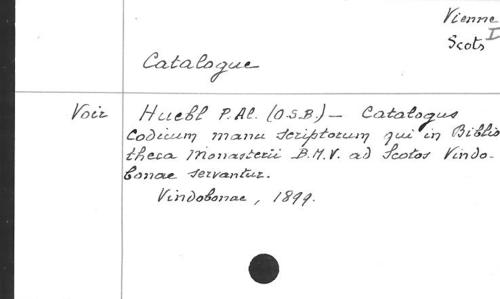 Vienne I
Scots
Catalogue
Voir Huebl P. Al. (O.S.B.) — Catalogus
Codicum manu scriptorum qui in Biblio
theca Monasterii B.M.V. ad Scotos Vindo-
bonae servantur.
Vindobonae, 1899.